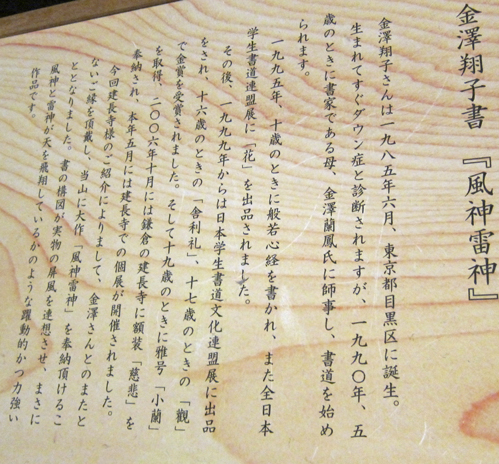 金澤翔子書 『風神雷神』
金澤翔子さんは一九八五年六月、東京都目黒区に誕生。
生まれてすぐダウン症と診断されますが、一九九〇年、五
歳のときに書家である母、金澤蘭鳳氏に師事し、書道を始め
られます。
一九九五年、十歳のときに般若心経を書かれ、また全日本
学生書道連盟展に「花」を出品されました。
その後、一九九九年からは日本学生書道文化連盟展に出品
をされ、十六歳のときの「舎利礼」、十七歳のときの「觀」
で金賞を受賞されました。そして十九歳のときに雅号「小蘭」
を取得、二〇〇六年十月には鎌倉の建長寺に額装「慈悲」を
奉納され、本年五月には建長寺での個展が開催されました。
今回建長寺様のご紹介によりまして、金澤さんとのまたと
ないご縁を頂戴し、当山に大作「風神雷神」を奉納頂けるこ
ととなりました。書の構図が実物の屏風を連想させ、まさに
風神と雷神が天を飛翔しているかのような躍動的かつ力強い
作品です。